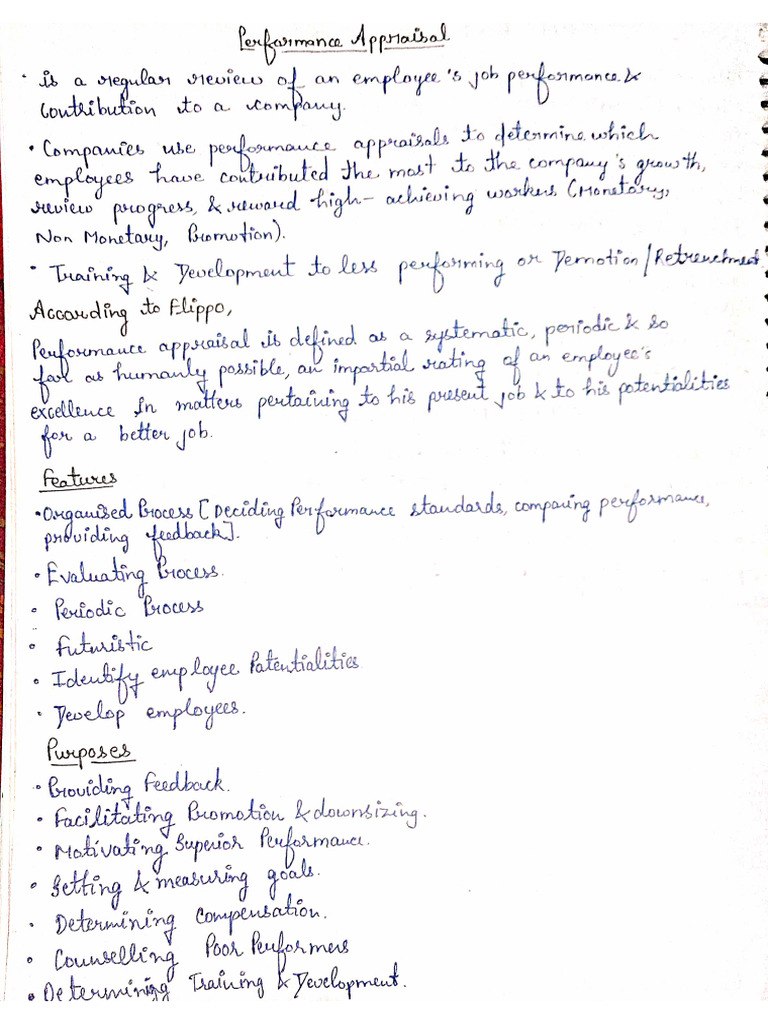 Performance Appraisal
• is a regular review of an employee's job performance &
contribution to a company.
• Companies use performance appraisals to determine which
employees have contributed the most to the company's growth,
review progress, & reward high-achieving workers (Monetary,
Non Monetary, Promotion).
• Training & Development to less performing or Demotion/Retrenchment
According to Flippo,
Performance appraisal is defined as a systematic, periodic & so
far as humanly possible, an impartial rating of an employee's
excellence in matters pertaining to his present job & to his potentialities
for a better job.
Features
• Organised Process [Deciding Performance standards, comparing performance,
providing feedback].
• Evaluating Process.
• Periodic Process
• Futuristic
• Identify employee Potentialities
• Develop employees.
Purposes
• Providing Feedback.
• Facilitating Promotion & downsizing.
• Motivating Superior Performance.
• Setting & measuring goals.
• Determining Compensation.
• Counselling Poor Performers
• Determining Training & Development.